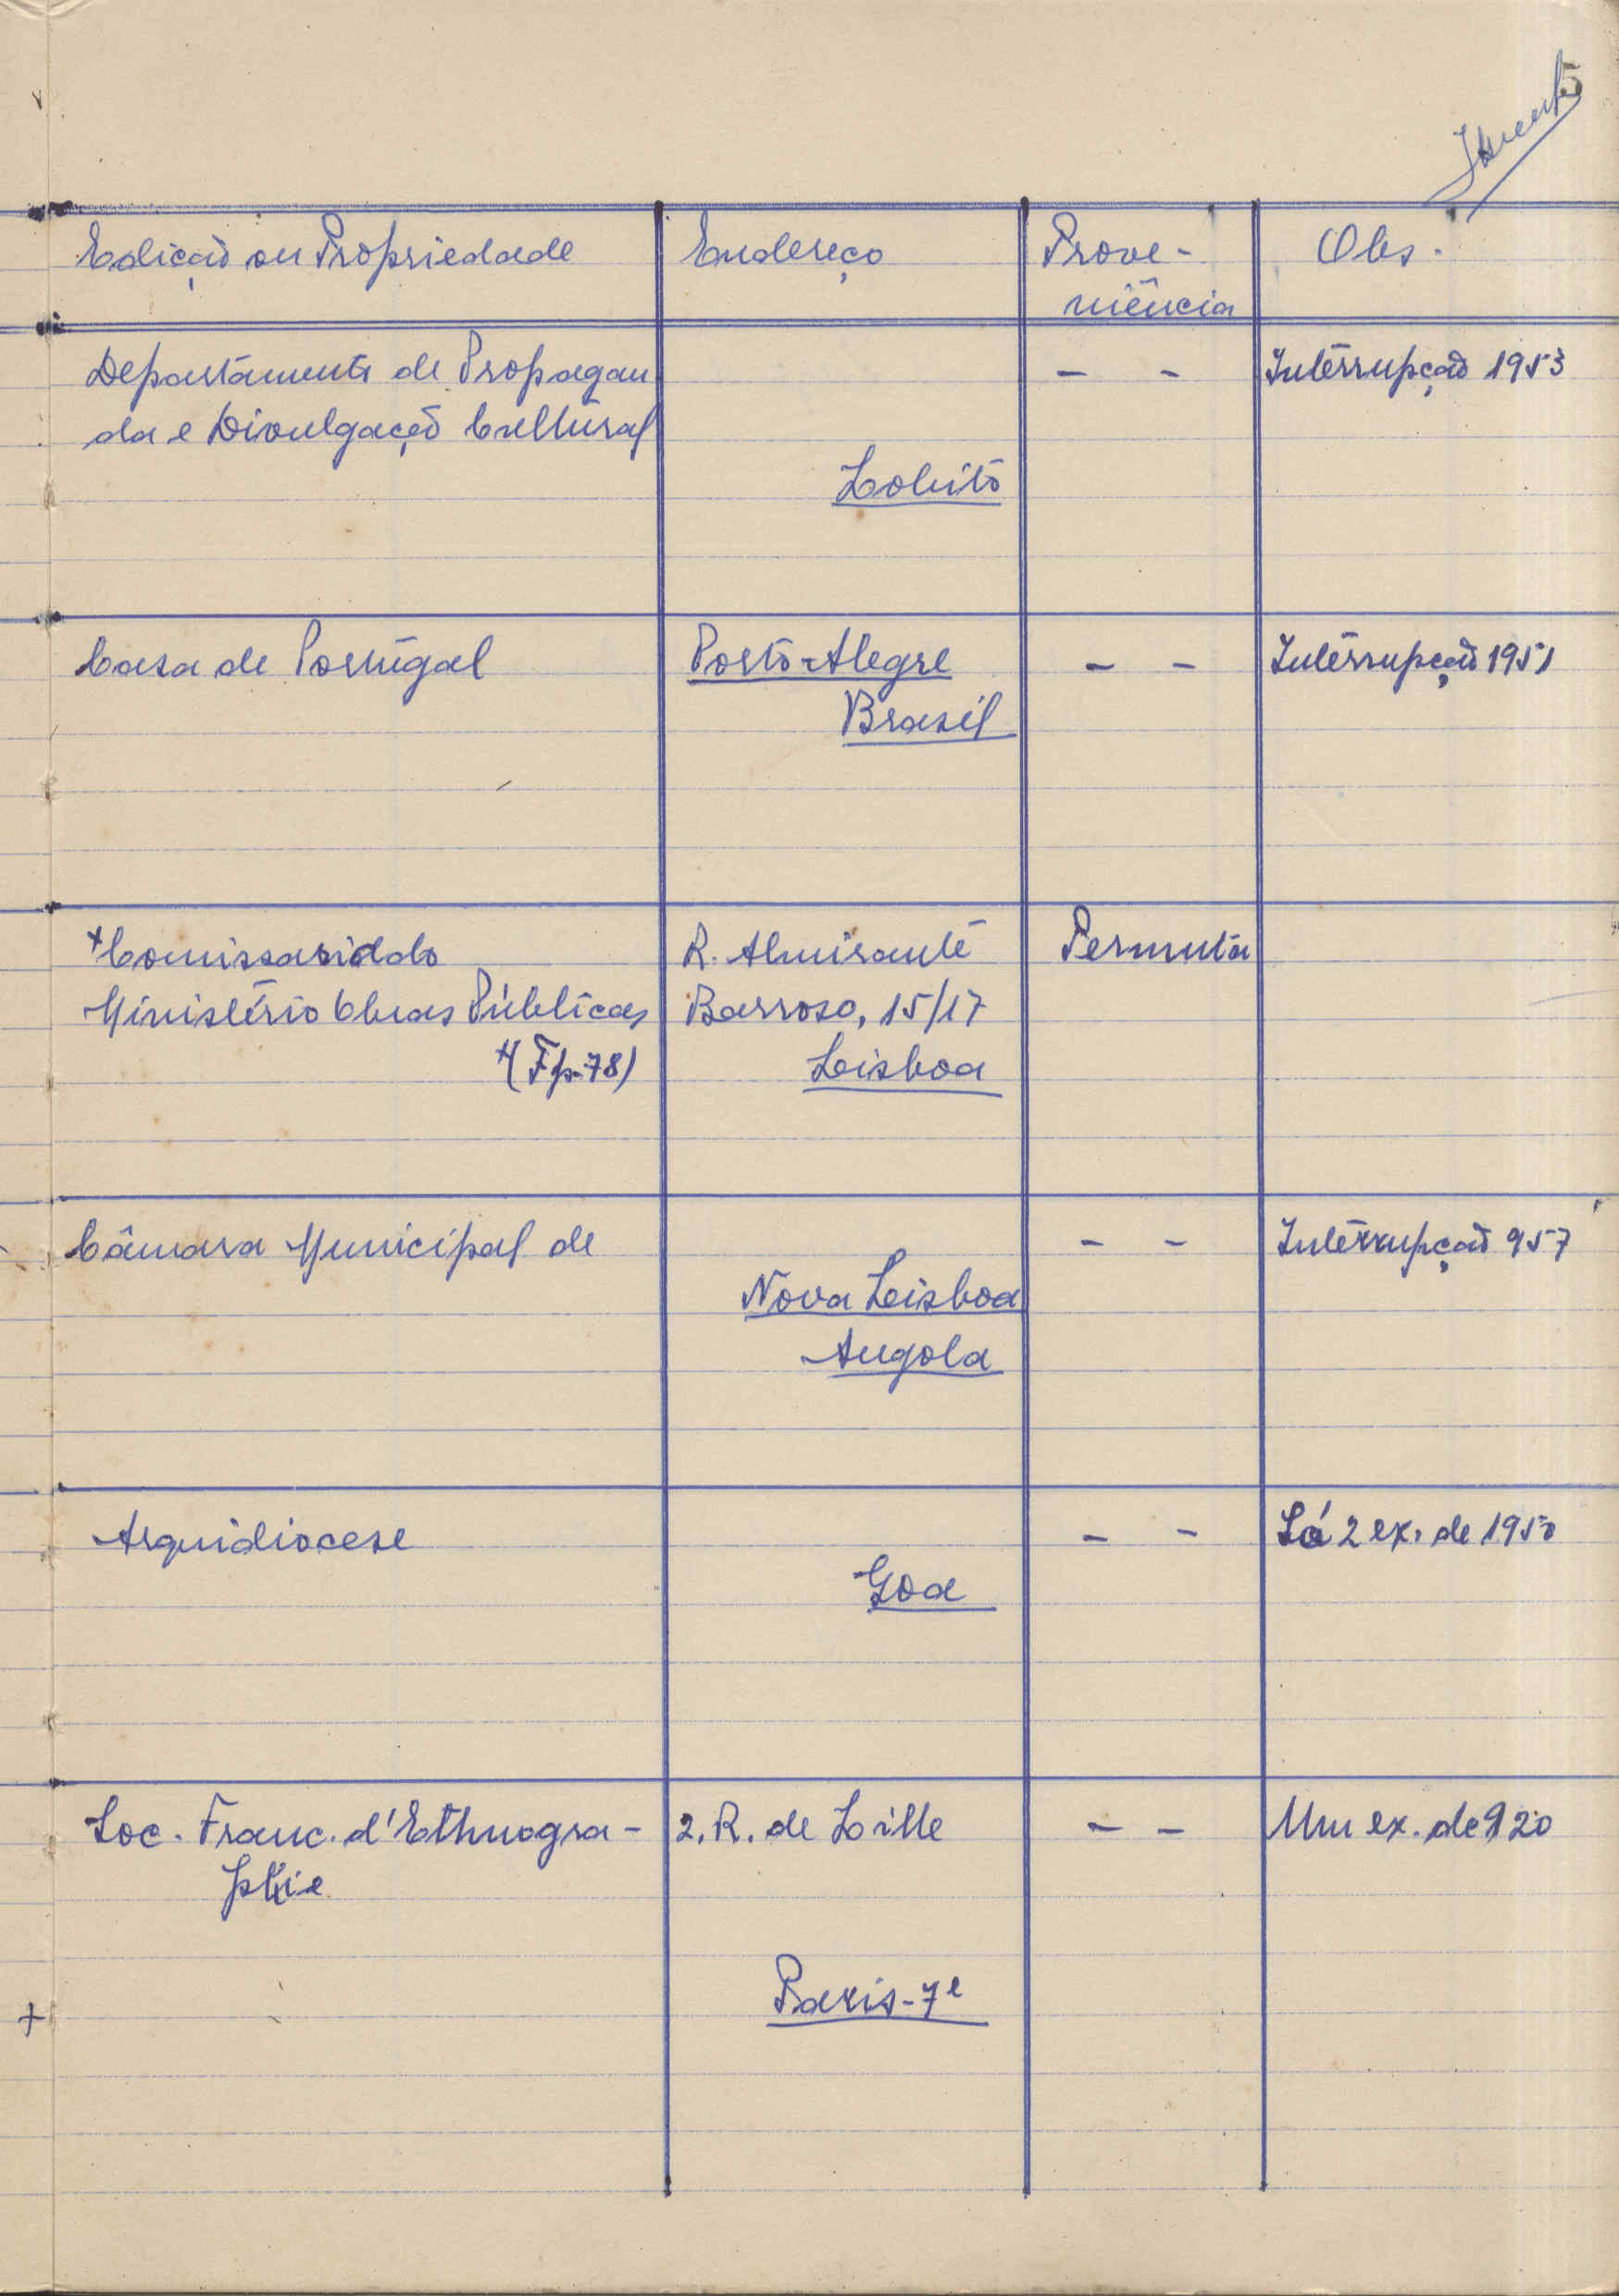 5
Edição ou Propriedade Endereço Prove- Obs.
niência
Departamento de Propagan - - Interrupção 1953
da e Divulgação Cultural
Lobito
Casa de Portugal Porto-Alegre - - Interrupção 1951
Brasil
R. Almirante Permuta
Ministério Obras Públicas Barroso, 15/17
Lisboa
Câmara Municipal de - - Interrupção 957
Nova Lisboa
Angola
Arquidiocese - - Só 2 ex. de 1950
Goa
Soc. Franc. d'Ethnogra- 2, R. de Lille - - Um ex. de 920
phie
Paris-7e